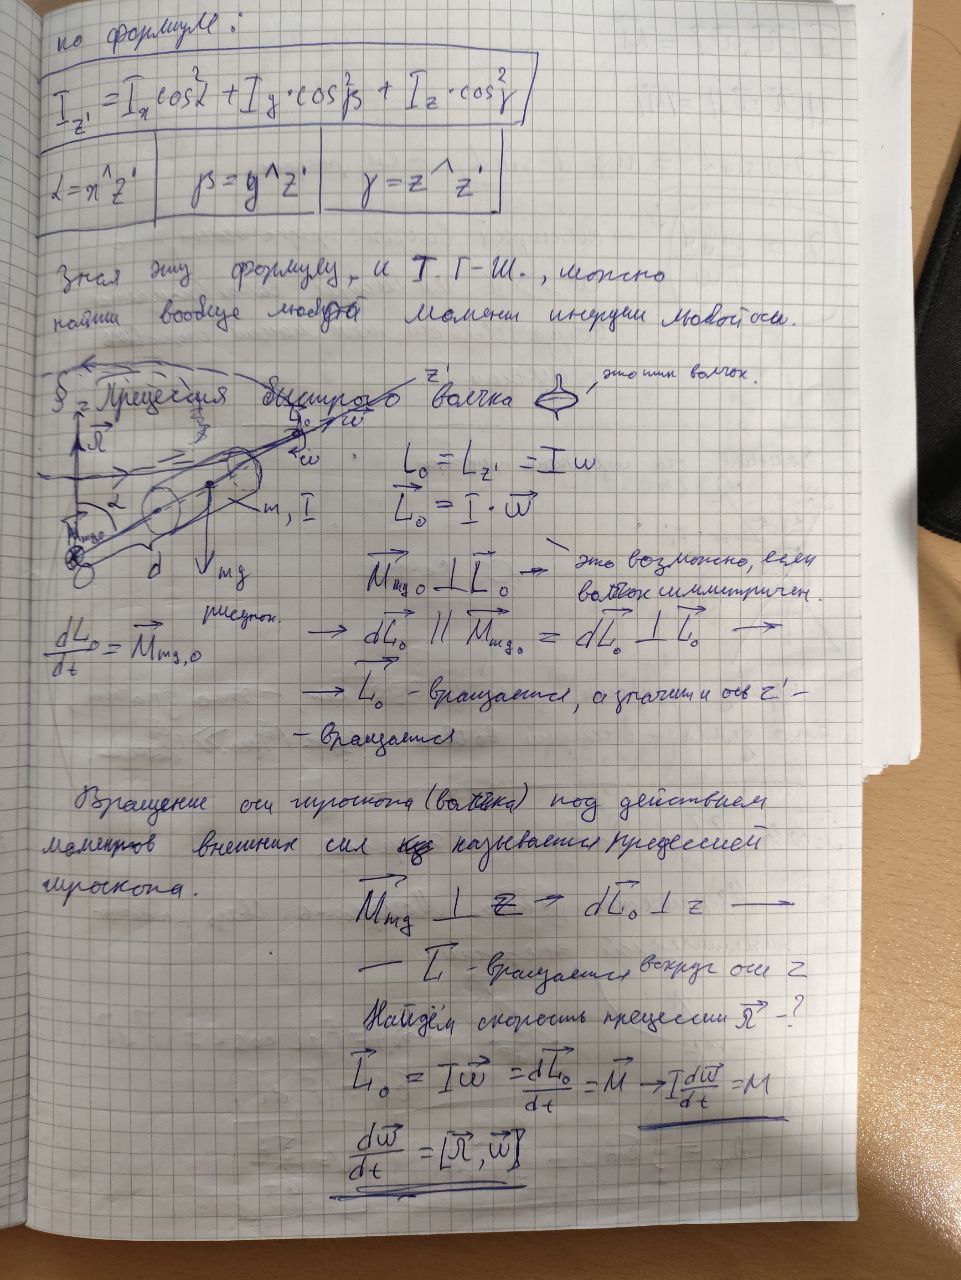 по формуле:
I_z' = I_x cos²α + I_y · cos²β + I_z · cos²γ
α = x^z' β = y^z' γ = z^z'
Зная эту формулу, и Т. Г-Ш., можно
найти вообще любой момент инерции любой оси.
§ Прецессия быстрого волчка
это тип волчок.
z'
L⃗₀ ω⃗
ω
Ω⃗
α
M⃗_mg0
O
d
m, I
mg
рисунок.
L₀ = L_z' = Iω
L⃗₀ = I · ω⃗
это возможно, если
волчок симметричен.
M⃗_mg0 ⊥ L⃗₀ →
dL⃗₀/dt = M⃗_mg,0
→ dL⃗₀ || M⃗_mg0 = dL⃗₀ ⊥ L⃗₀ →
→ L⃗₀ - вращается, а значит и ось z' -
- вращается
Вращение оси гироскопа (волчка) под действием
моментов внешних сил называется прецессией
гироскопа.
M⃗_mg ⊥ z → dL⃗₀ ⊥ z →
— L⃗ - вращается вокруг оси z
Найдём скорость прецессии Ω⃗ - ?
L⃗₀ = Iω⃗ = dL⃗₀/dt = M⃗ → I dω⃗/dt = M
dω⃗/dt = [Ω⃗, ω⃗]